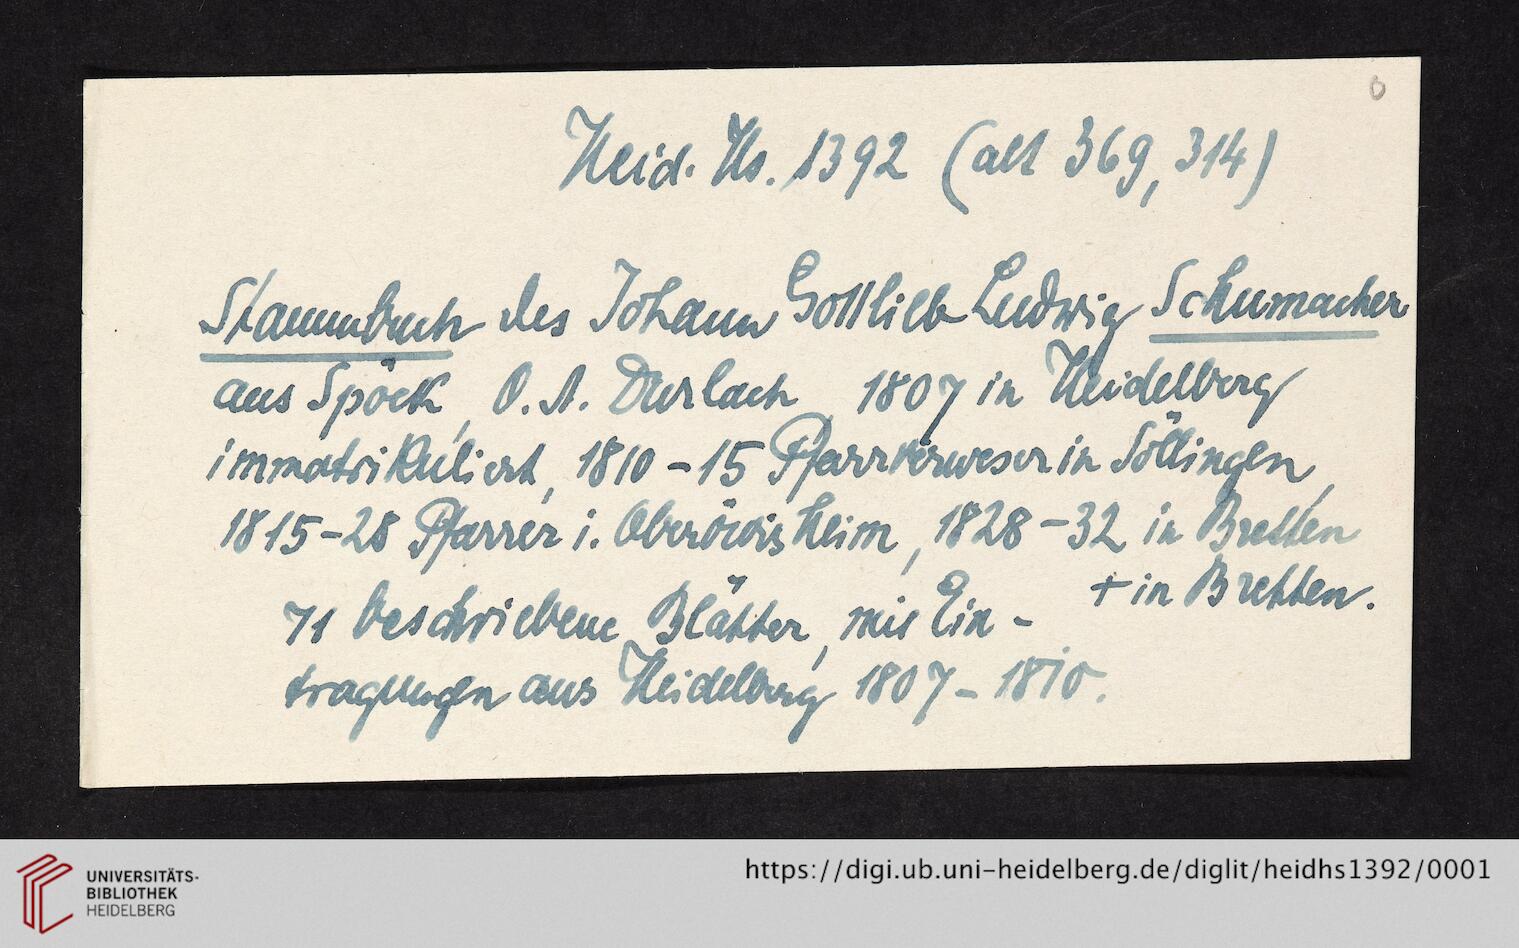 0
Heid. Hs. 1392 (alt 369, 314)
Stammbuch des Johann Gottlieb Ludwig Schumacher
aus Spöck, O. A. Durlach, 1807 in Heidelberg
immatrikuliert, 1810-15 Pfarrverweser in Söllingen,
1815-28 Pfarrer i. Oberöwisheim, 1828-32 in Bretten
+ in Bretten.
71 beschriebene Blätter, mit Ein-
tragungen aus Heidelberg 1807-1810.
UNIVERSITÄTS-
BIBLIOTHEK
HEIDELBERG
https://digi.ub.uni-heidelberg.de/diglit/heidhs1392/0001